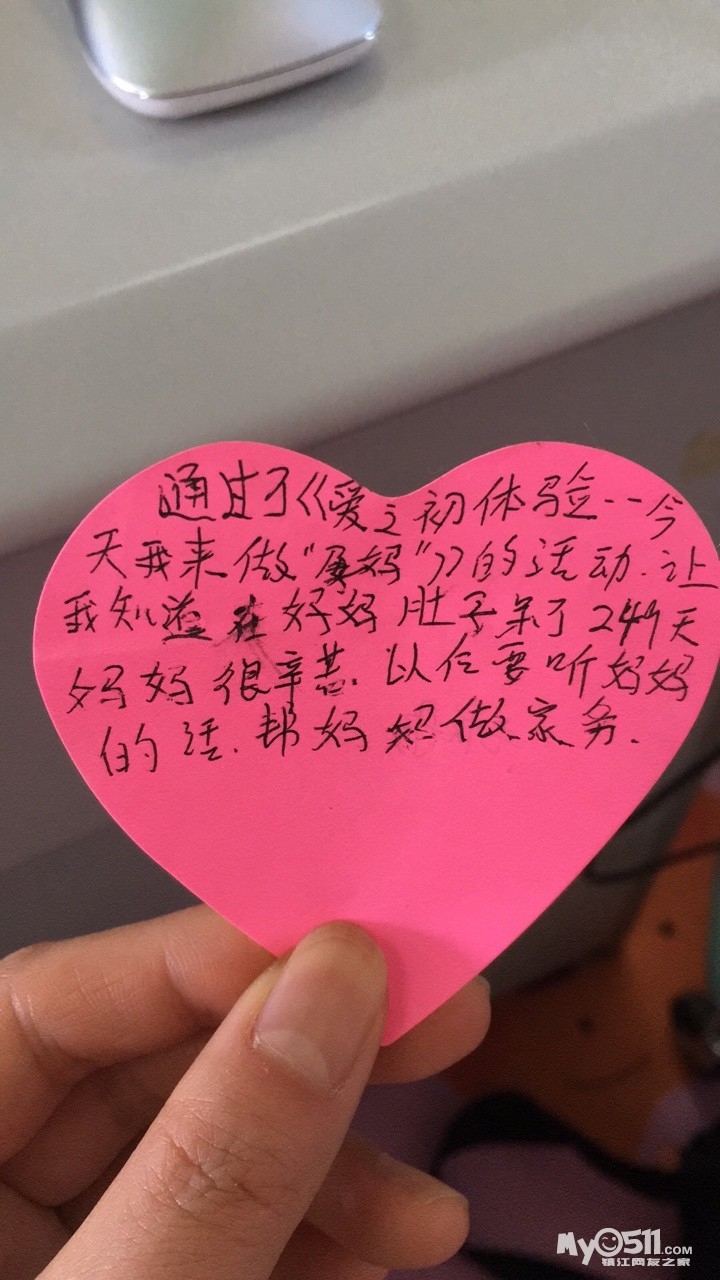 通过了《爱之初体验--今
天我来做"孕妈"》的活动.让
我知道在好妈肚子呆了249天
妈妈很辛苦.以后要听妈妈
的话.帮妈妈做家务.
MyO511.com
镇江网友之家